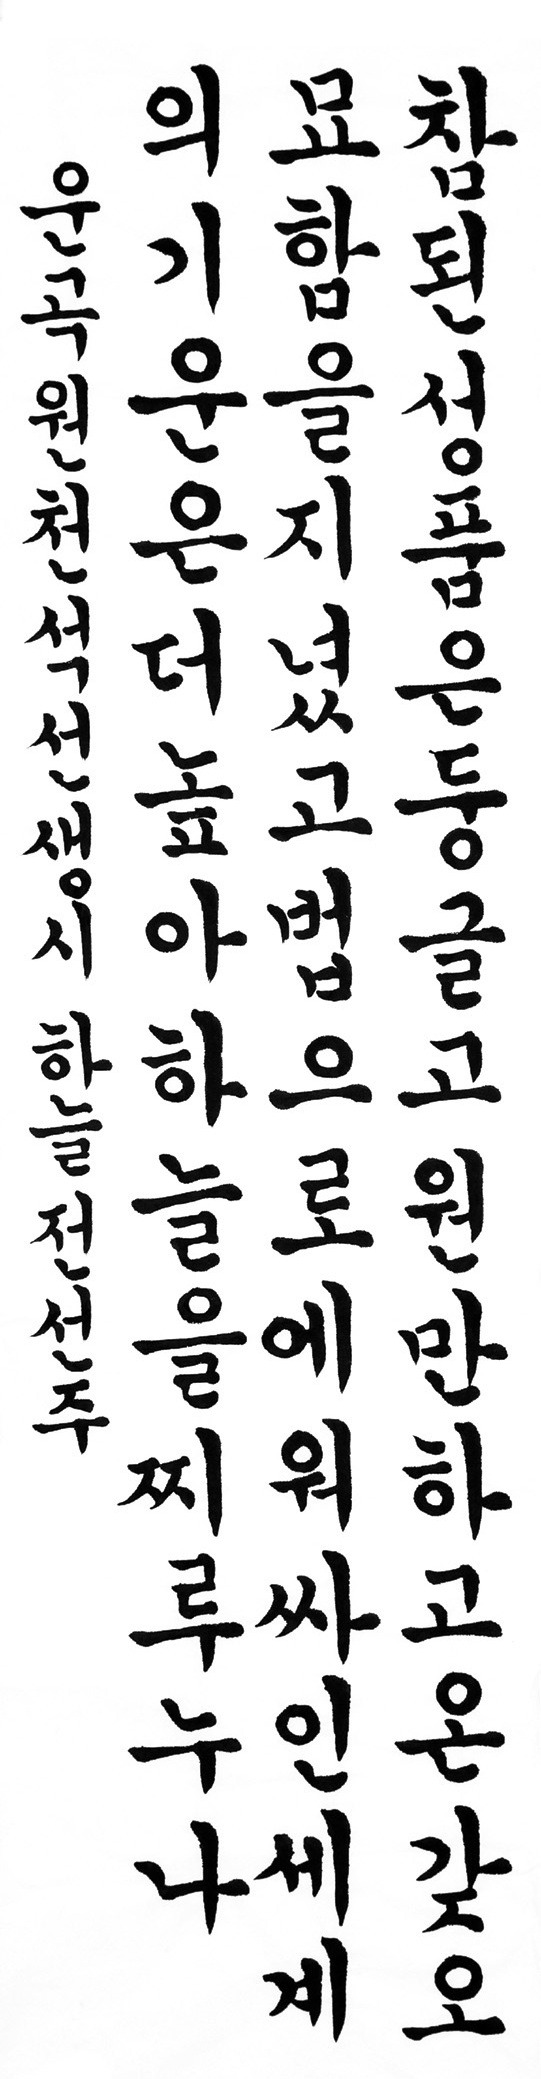 참된성품은둥글고원만하고온갖오
묘함을지녔고법으로에워싸인세계
의기운은더높아하늘을찌루누나
운곡원천석선생시 하늘전선주